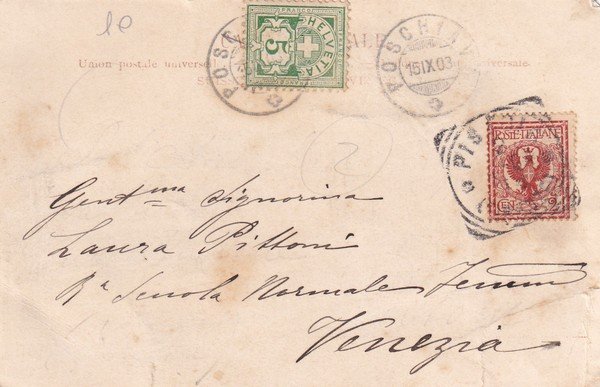 10
5
HELVETIA
FRANCO
POSCHIAVO
15 IX 03
Union postale universelle
POSTE ITALIANE
CENT. 2
2
Gent.ma Signorina
Laura Pittoni
Ra Scuola Normale Femm
Venezia